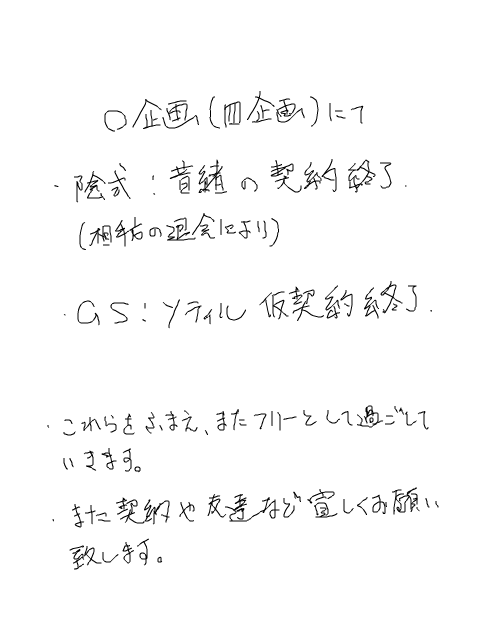 ○企画(皿企画)にて
・陰式:昔緒の契約終了.
(相手方の退会により)
・GS:ソティル 仮契約終了.
・これらをふまえ、またフリーとして過ごして
いきます。
・また契約や友達など宜しくお願い
致します。